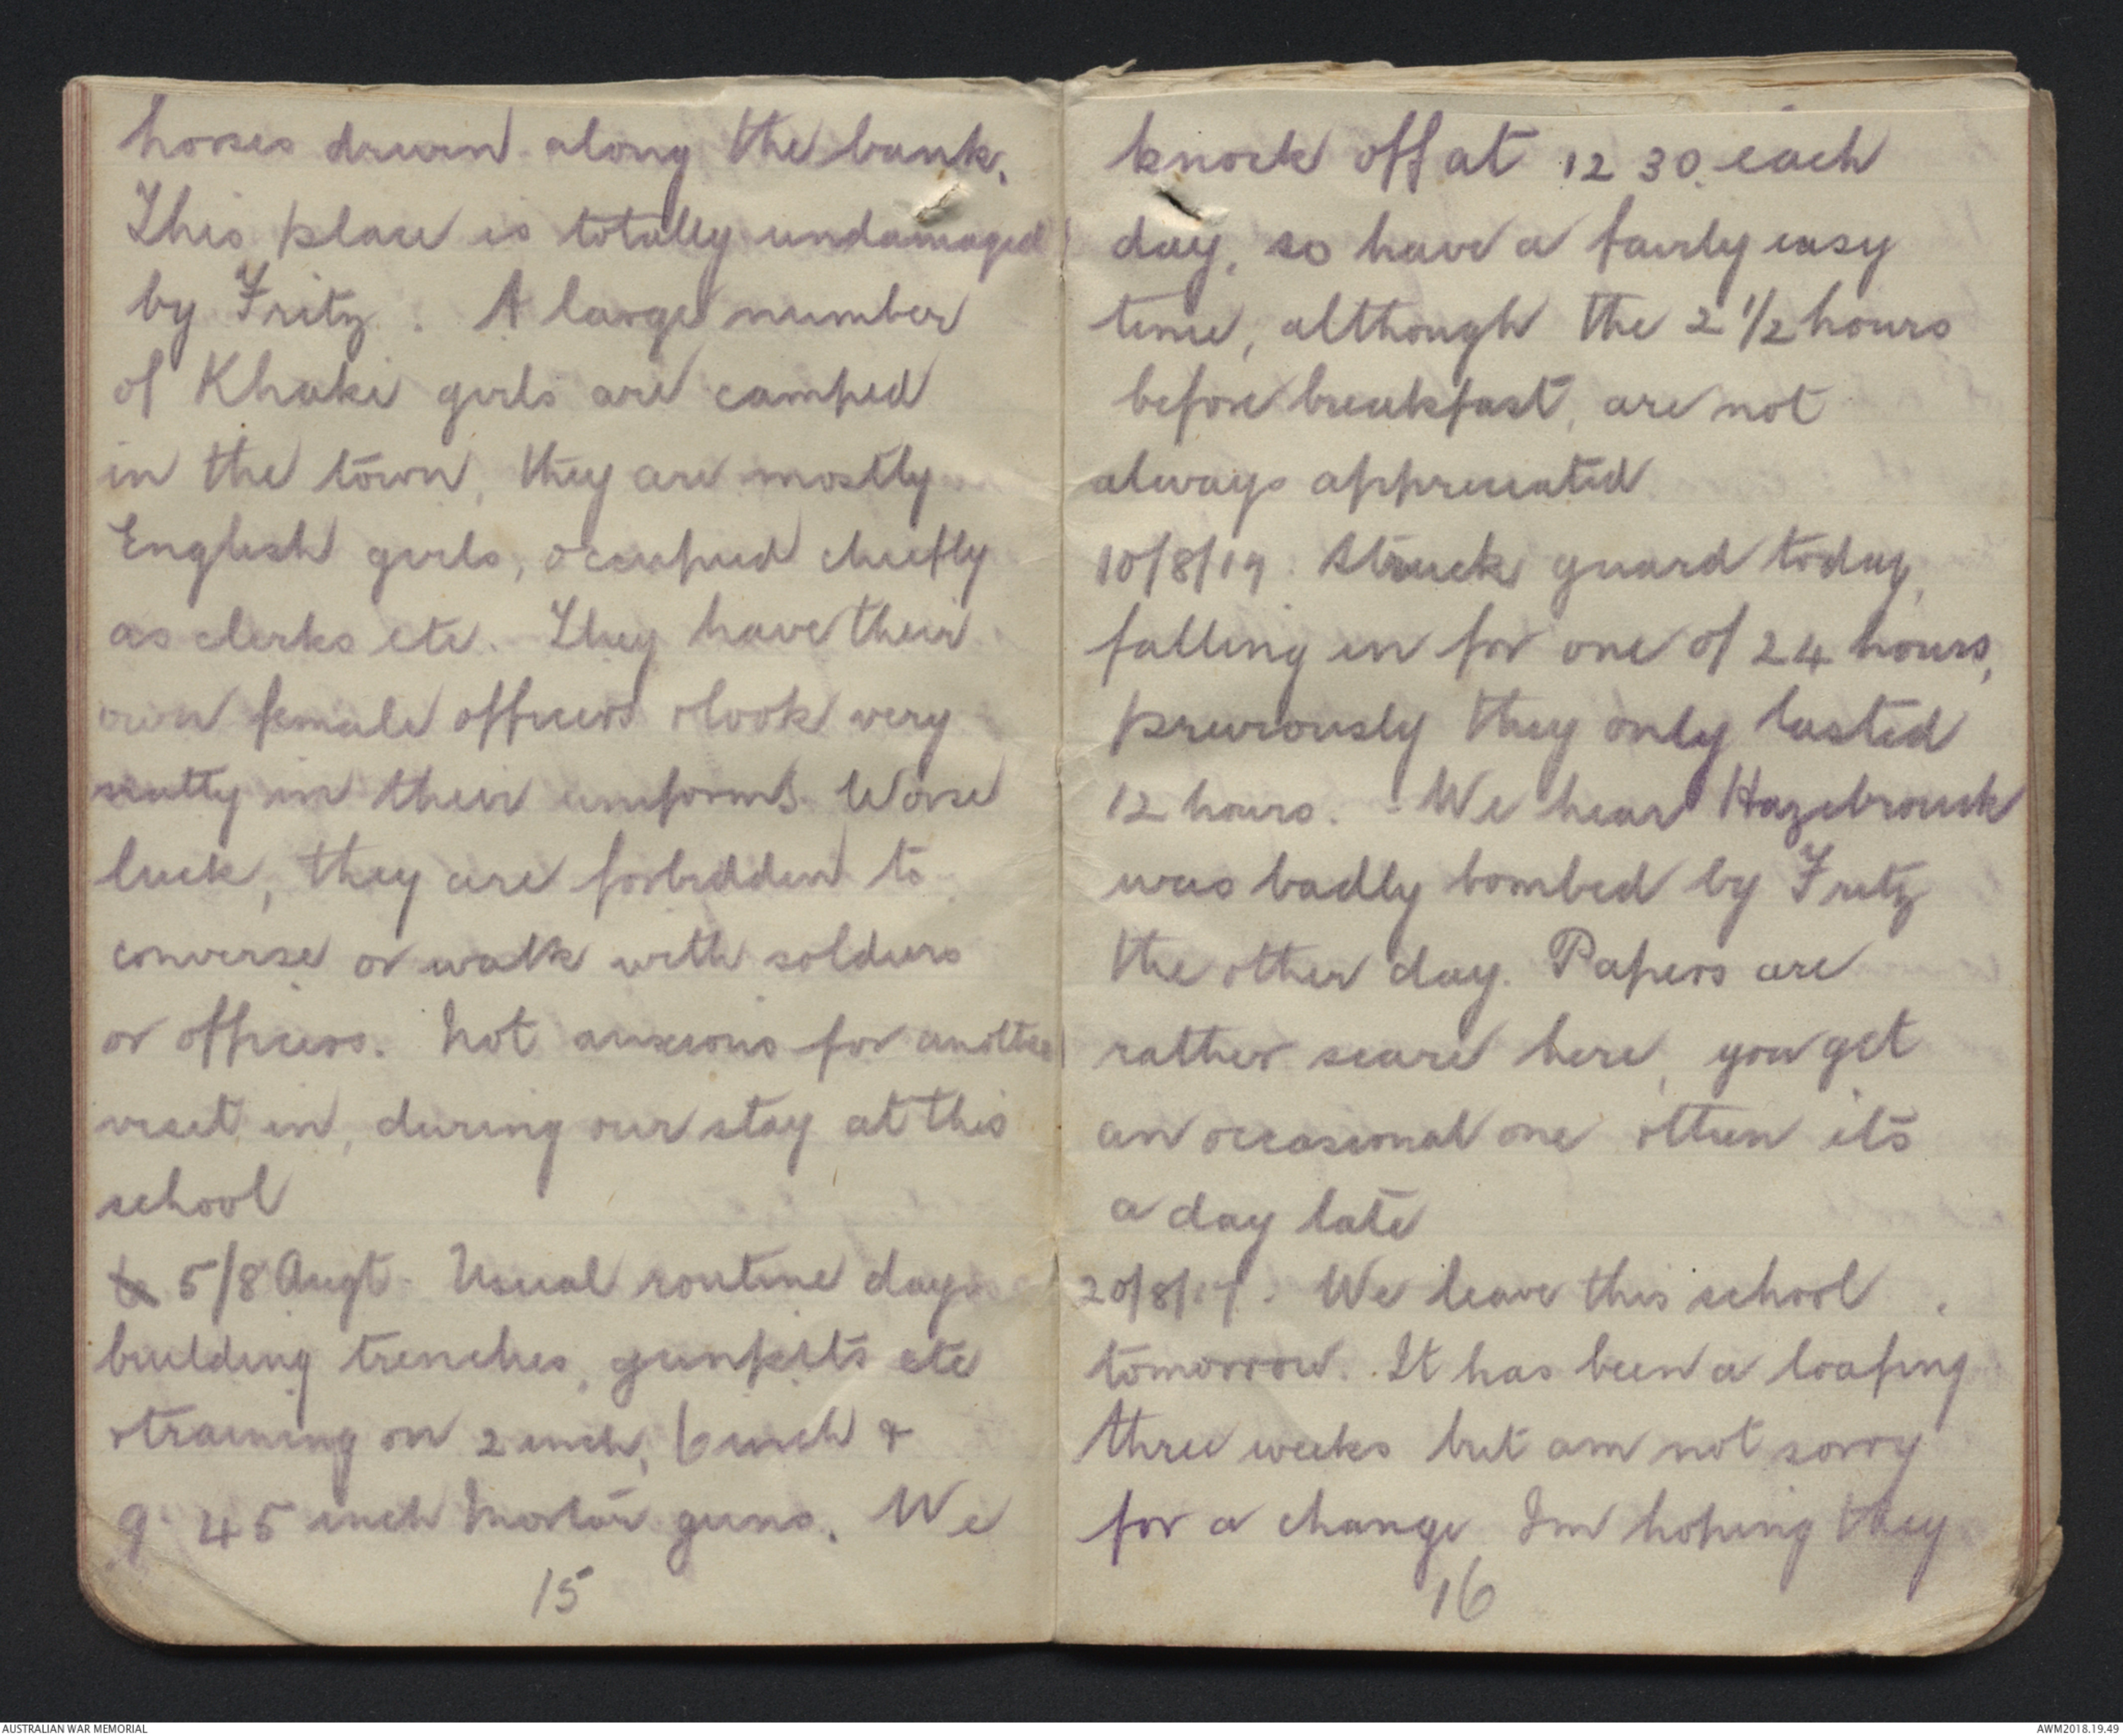 horses drawn along the bank.
This place is totally undamaged
by Fritz. A large number
of Khaki girls are camped
in the town, they are mostly
English girls, occupied chiefly
as clerks etc. They have their
own female officers & look very
natty in their uniforms. Worse
luck, they are forbidden to
converse or walk with soldiers
or officers. Not anxious for another
visit in, during our stay at this
school
5/8 Augt - Usual routine days
building trenches, gunpits etc
& training on 2 inch, 6 inch &
9.45 inch Mortar guns. We
15
knock off at 12 30 each
day, so have a fairly easy
time, although the 2 1/2 hours
before breakfast, are not
always appreciated
10/8/17. Struck guard today,
falling in for one of 24 hours,
previously they only lasted
12 hours. - We hear Hazebrouck
was badly bombed by Fritz
the other day. Papers are
rather scarce here, you get
an occasional one & then its
a day late
20/8/17. We leave this school
tomorrow. It has been a loafing
three weeks but am not sorry
for a change. Im hoping they
16
AUSTRALIAN WAR MEMORIAL
AWM2018.19.49